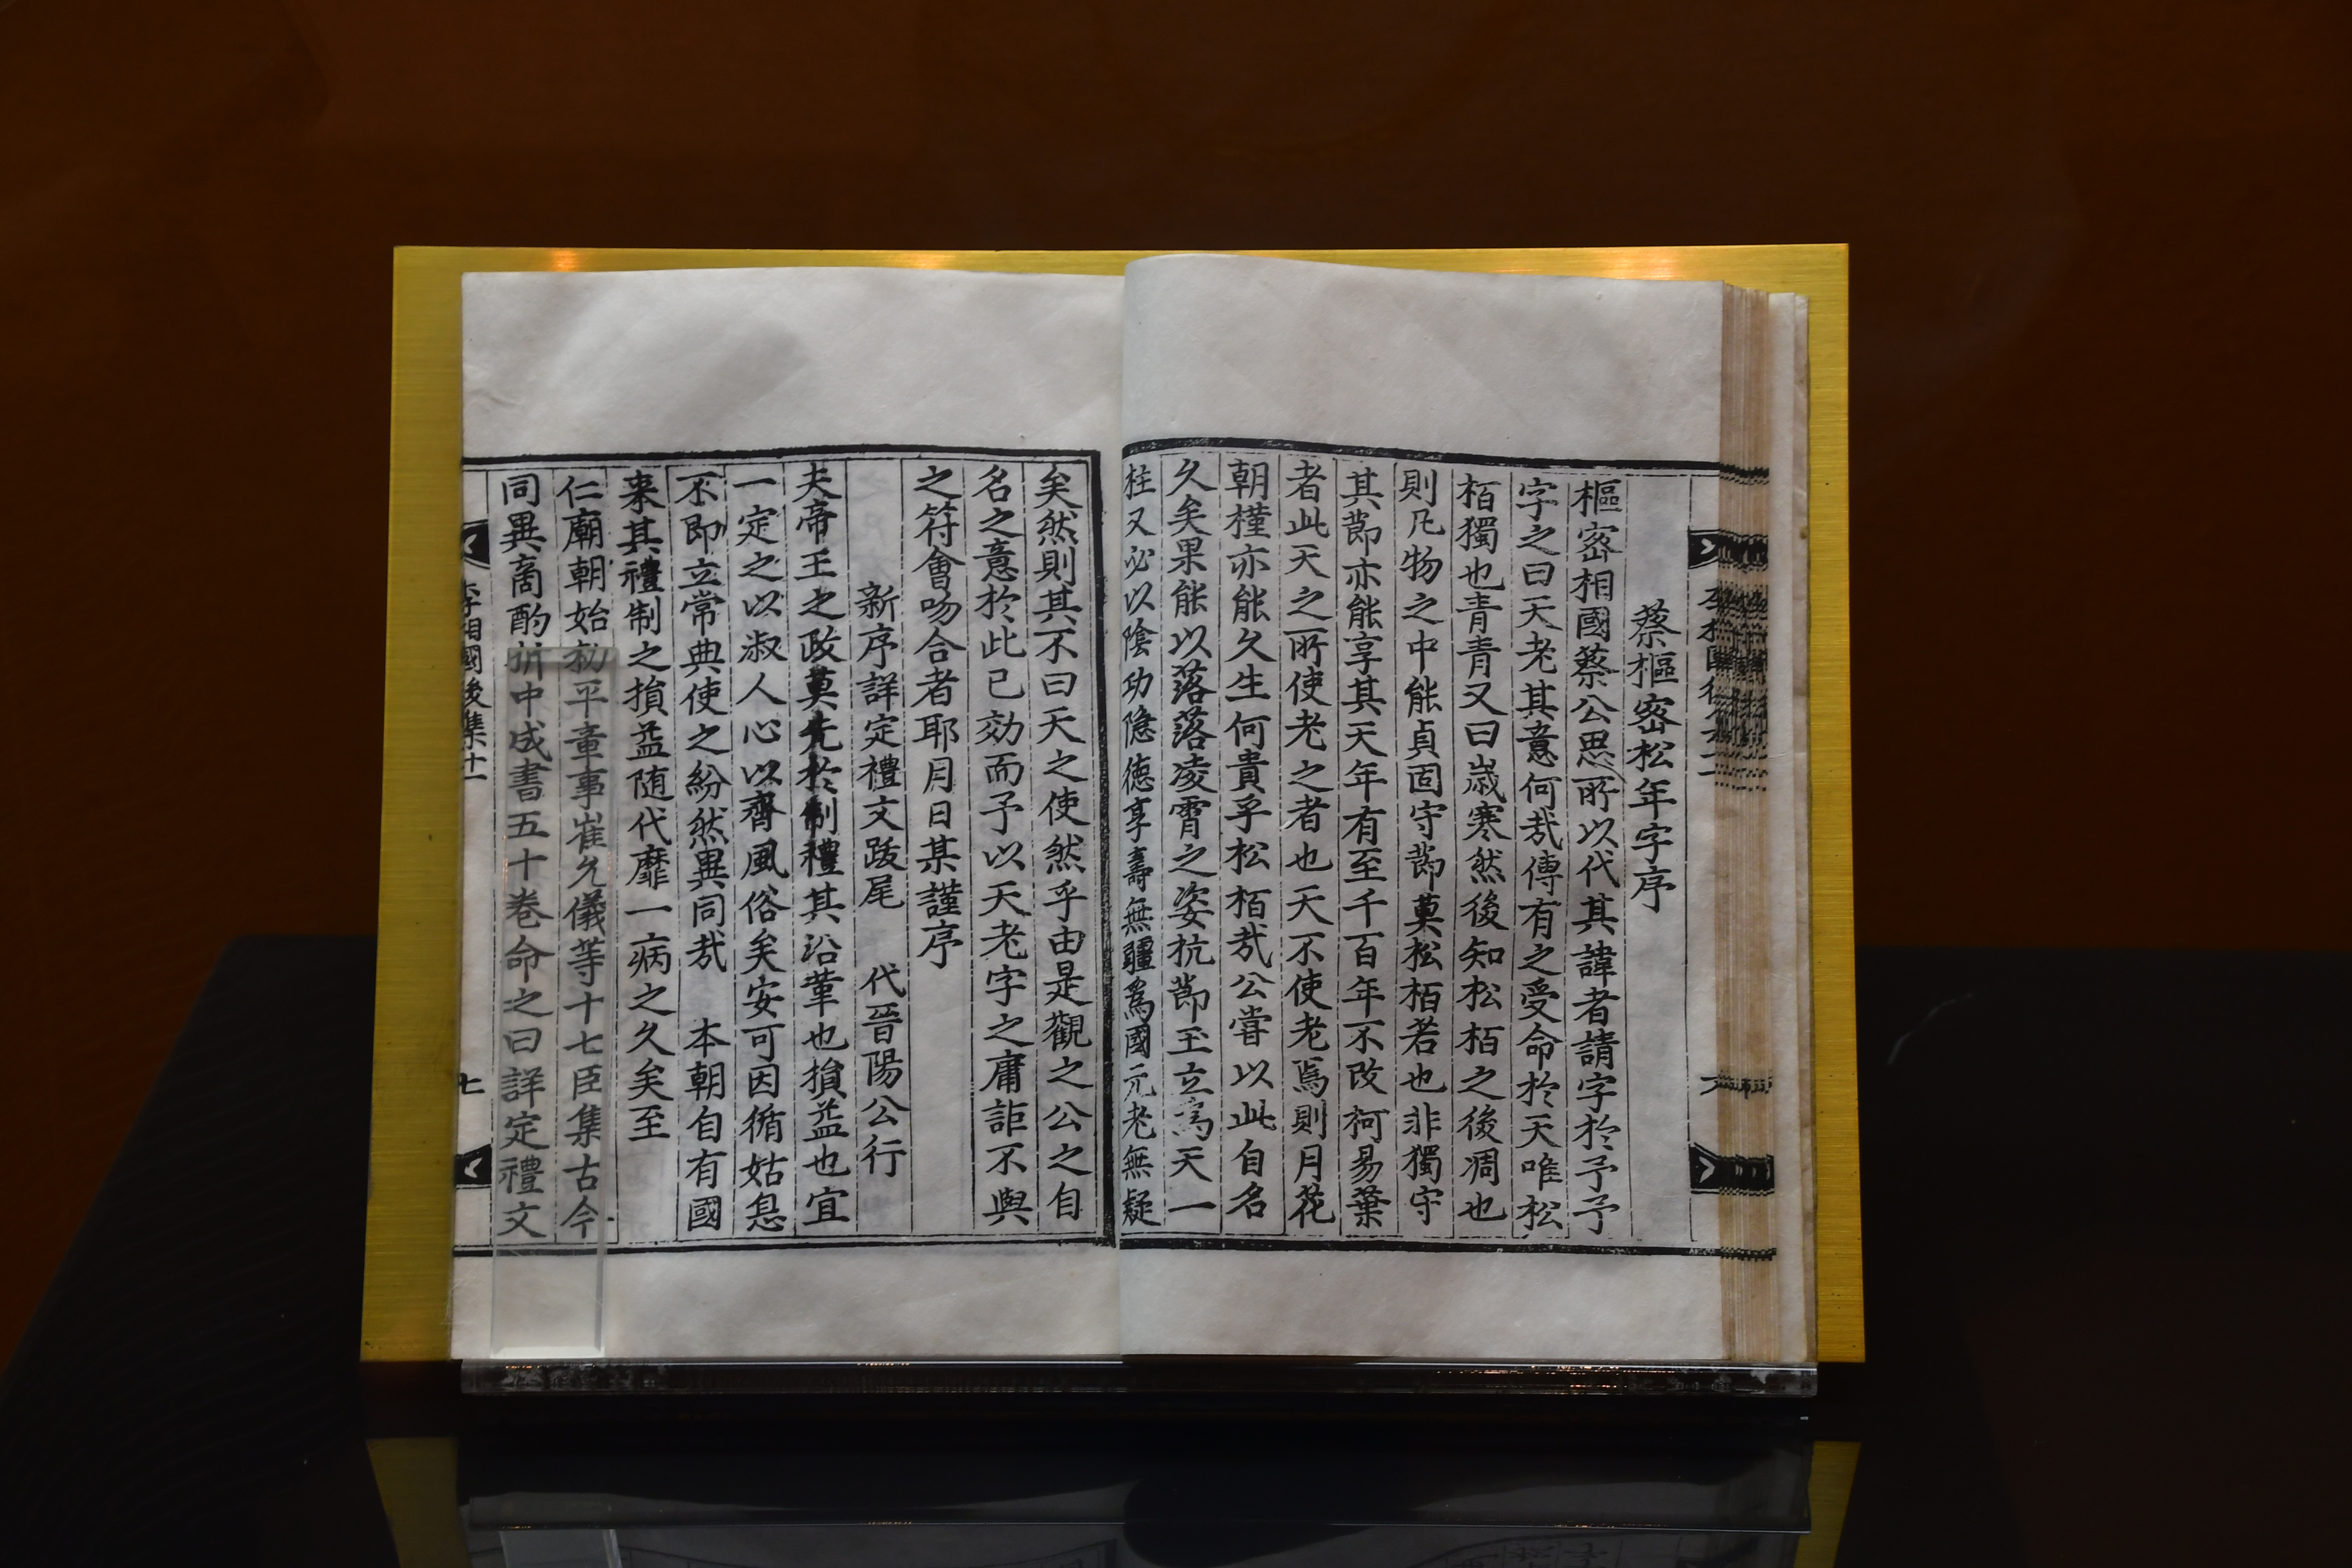 蔡樞密松年字序
樞密相國蔡公思所以代其諱者請字於予予
字之曰天老其意何哉傳有之受命於天唯松
栢獨也青青又曰歲寒然後知松栢之後凋也
則凡物之中能貞固守節莫松栢若也非獨守
其節亦能享其天年有至千百年不改柯易葉
者此天之所使老之者也天不使老焉則月花
朝槿亦能久生何貴乎松栢哉公嘗以此自名
久矣果能以落落凌霄之姿抗節玉立為天一
柱又必以陰功隱德享壽無疆爲國元老無疑
矣然則其不曰天之使然乎由是觀之公之自
名之意於此已効而予以天老字之庸詎不與
之符會吻合者耶月日某謹序
新序詳定禮文跋尾 代晉陽公行
夫帝王之政莫先於制禮其㳂革也損益也宜
一定之以淑人心以齊風俗矣安可因循姑息
不即立常典使之紛然異同哉 本朝自有國
来其禮制之損益随代靡一病之久矣至
仁廟朝始勑平章事崔允儀等十七臣集古今
同異商酌折中成書五十卷命之曰詳定禮文
李相國後集十一
七